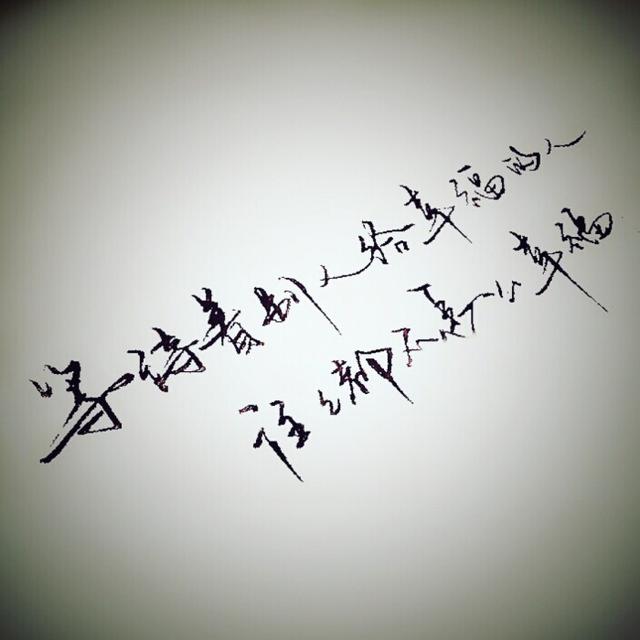 等待着别人给幸福的人
往往都不怎么幸福